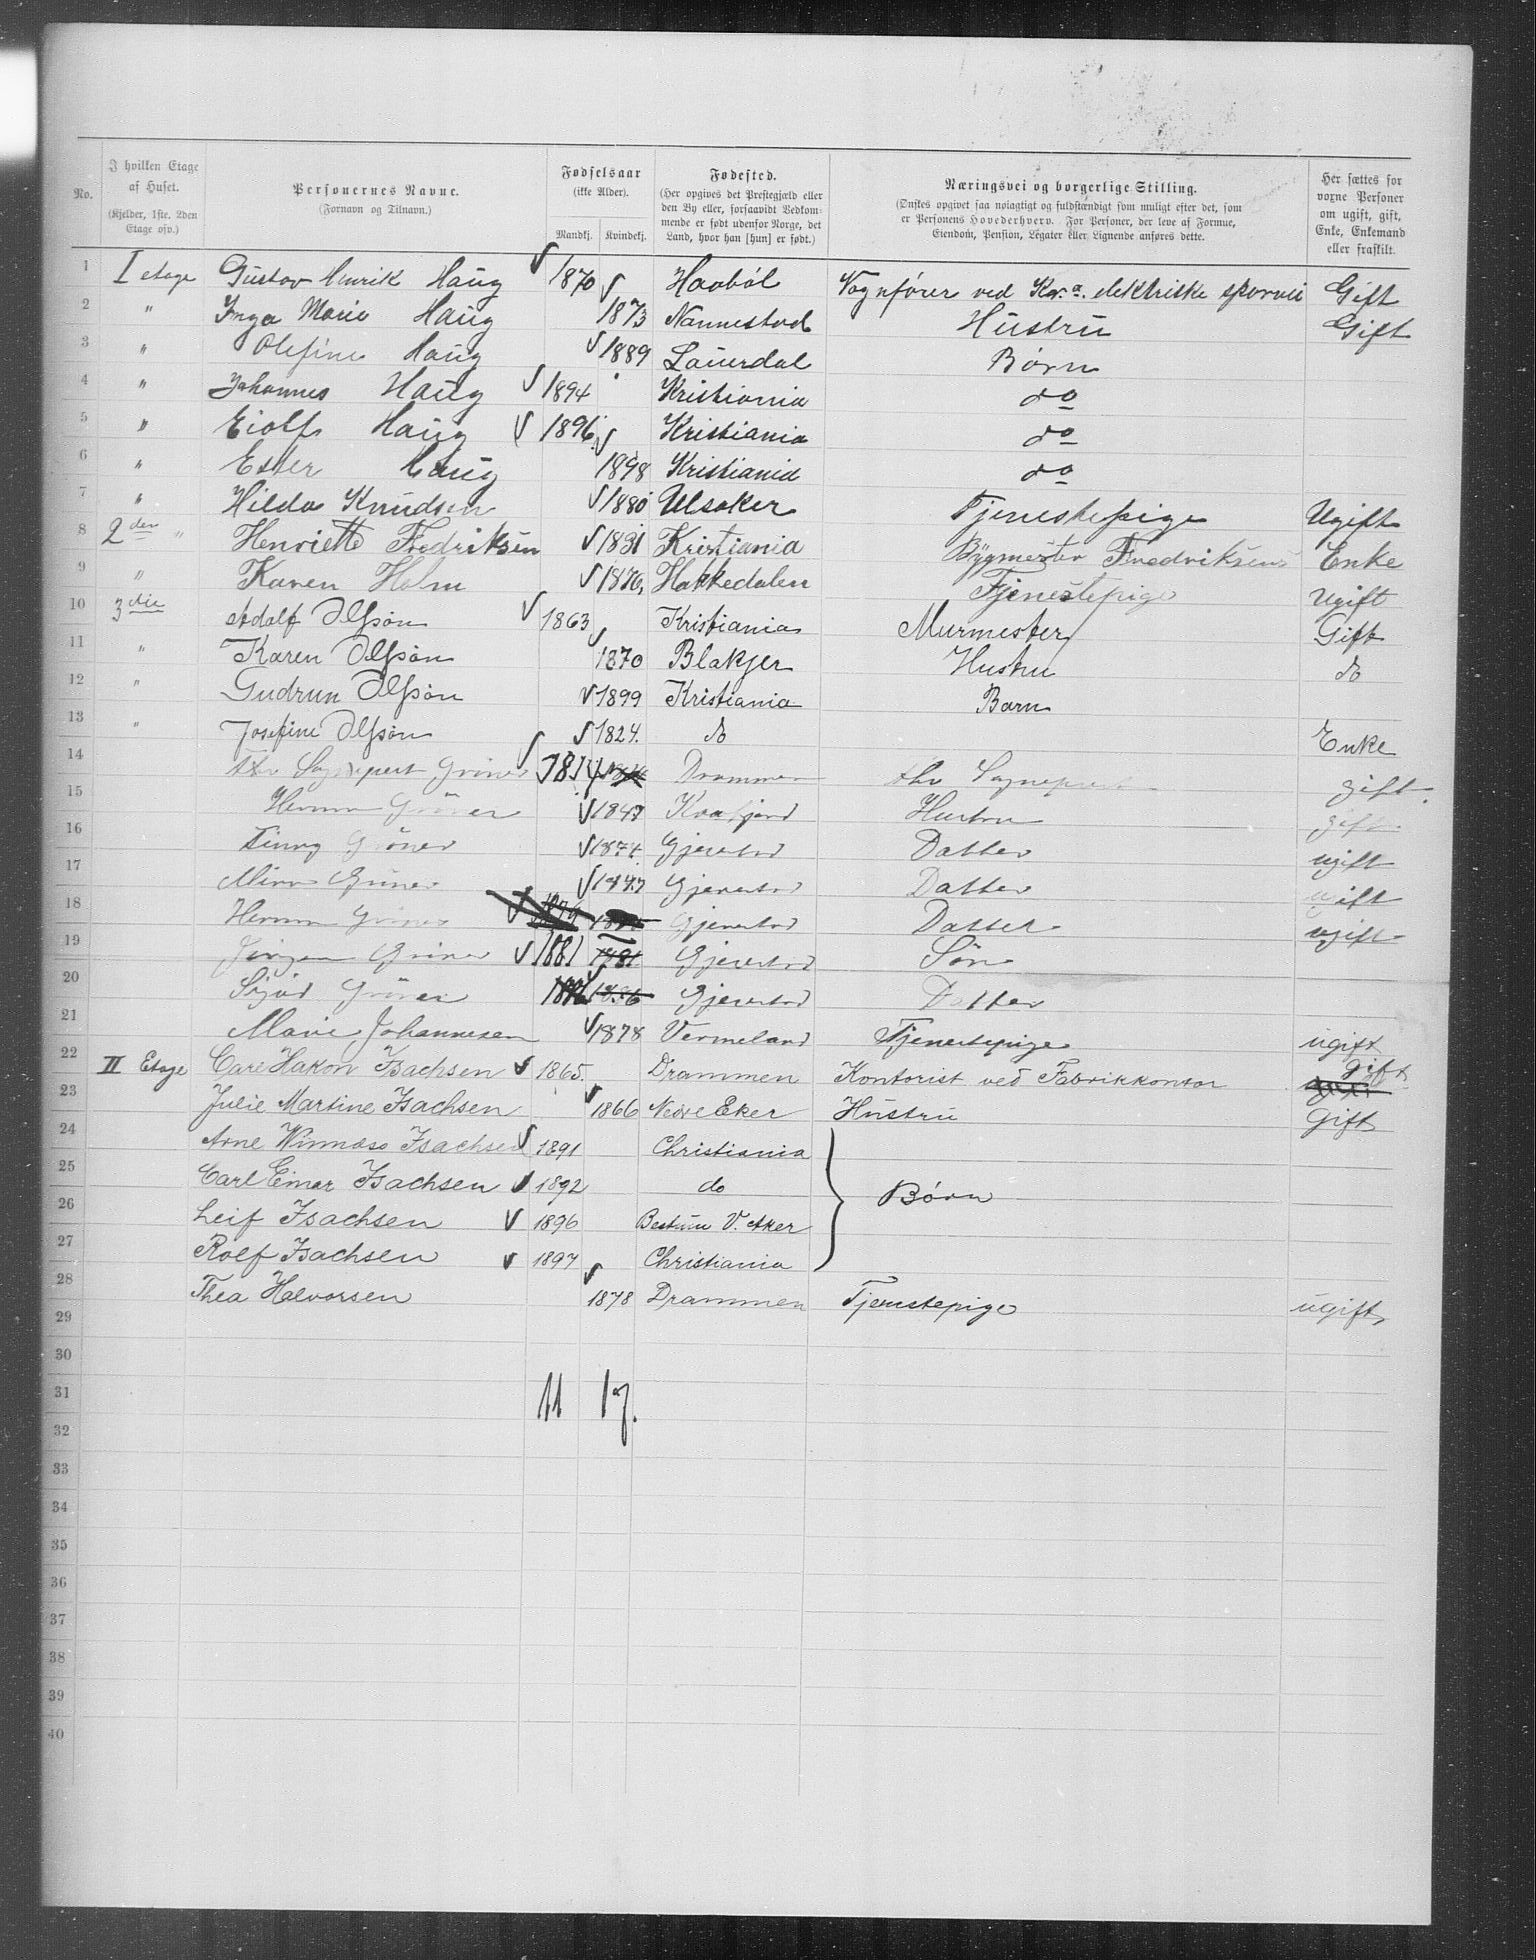 No.
I hvilken Etage af Huset.
(Kjelder, 1ste, 2den Etage osv.)
Personernes Navne.
(Fornavn og Tilnavn.)
Fødselsaar
(ikke Alder).
Mandkj. Kvindekj.
Fødested.
(Her opgives det Prestegjæld eller den By eller, forsaavidt Vedkommende er født udenfor Norge, det Land, hvor han [hun] er født.)
Næringsvei og borgerlige Stilling.
(Ønskes opgivet saa nøiagtigt og fuldstændigt som muligt efter det, som er Personens Hovederhverv. For Personer, der leve af Formue, Eiendom, Pension, Legater eller Lignende anføres dette.
Her sættes for voxne Personer om ugift, gift, Enke, Enkemand eller fraskilt.
1 I etage Gustav Henrik Haug 1870 Haabøl Vognfører ved Kr.a. elektriske sporvei Gift
2 " Inga Marie Haug 1873 Nannestad Hustru Gift
3 " Olefine Haug 1889 Laurdal Børn
4 " Johannes Haug 1894 Kristiania do
5 " Eiolf Haug 1896 Kristiania do
6 " Ester Haug 1898 Kristiania do
7 " Hilda Knudsen 1880 Ulsaker Tjenestepige Ugift
8 2den " Henriette Fredriksen 1831 Kristiania Bygmester Fredriksens Enke
9 " Karen Holm 1876 Hakkedalen Tjenestepige Ugift
10 3die Adolf Olsson 1863 Kristiania Murmester Gift
11 " Karen Olsson 1870 Blakjer Hustru do
12 " Gudrun Olsson 1899 Kristiania Barn
13 " Josefine Olsson 1824. do Enke
14 Drammen gift
15 Grøner 1847 Hustru gift
16 Grøner 1874 Gjerestad Datter ugift
17 Grøner Gjerestad Datter ugift
18 Grøner Gjerestad Datter ugift
19 Jørgen Grøner 1881 Gjerestad Søn
20 Grøner 1886 Gjerestad Datter
21 Marie Johannesen 1878 Vermeland Tjenestepige ugift
22 II Etage Carl Hakon Isachsen 1865. Drammen Kontorist ved Fabrikkontor gift
23 Julie Martine Isachsen 1866 Nedre Eker Hustru Gift
24 Arne Isachsen 1891 Christiania
25 Carl Einar Isachsen 1892 do Børn
26 Leif Isachsen 1896 Bestum V. Aker
27 Rolf Isachsen 1897 Christiania
28 Thea Halvorsen 1878 Drammen Tjenestepige ugift
29
30
31 11 17.
32
33
34
35
36
37
38
39
40